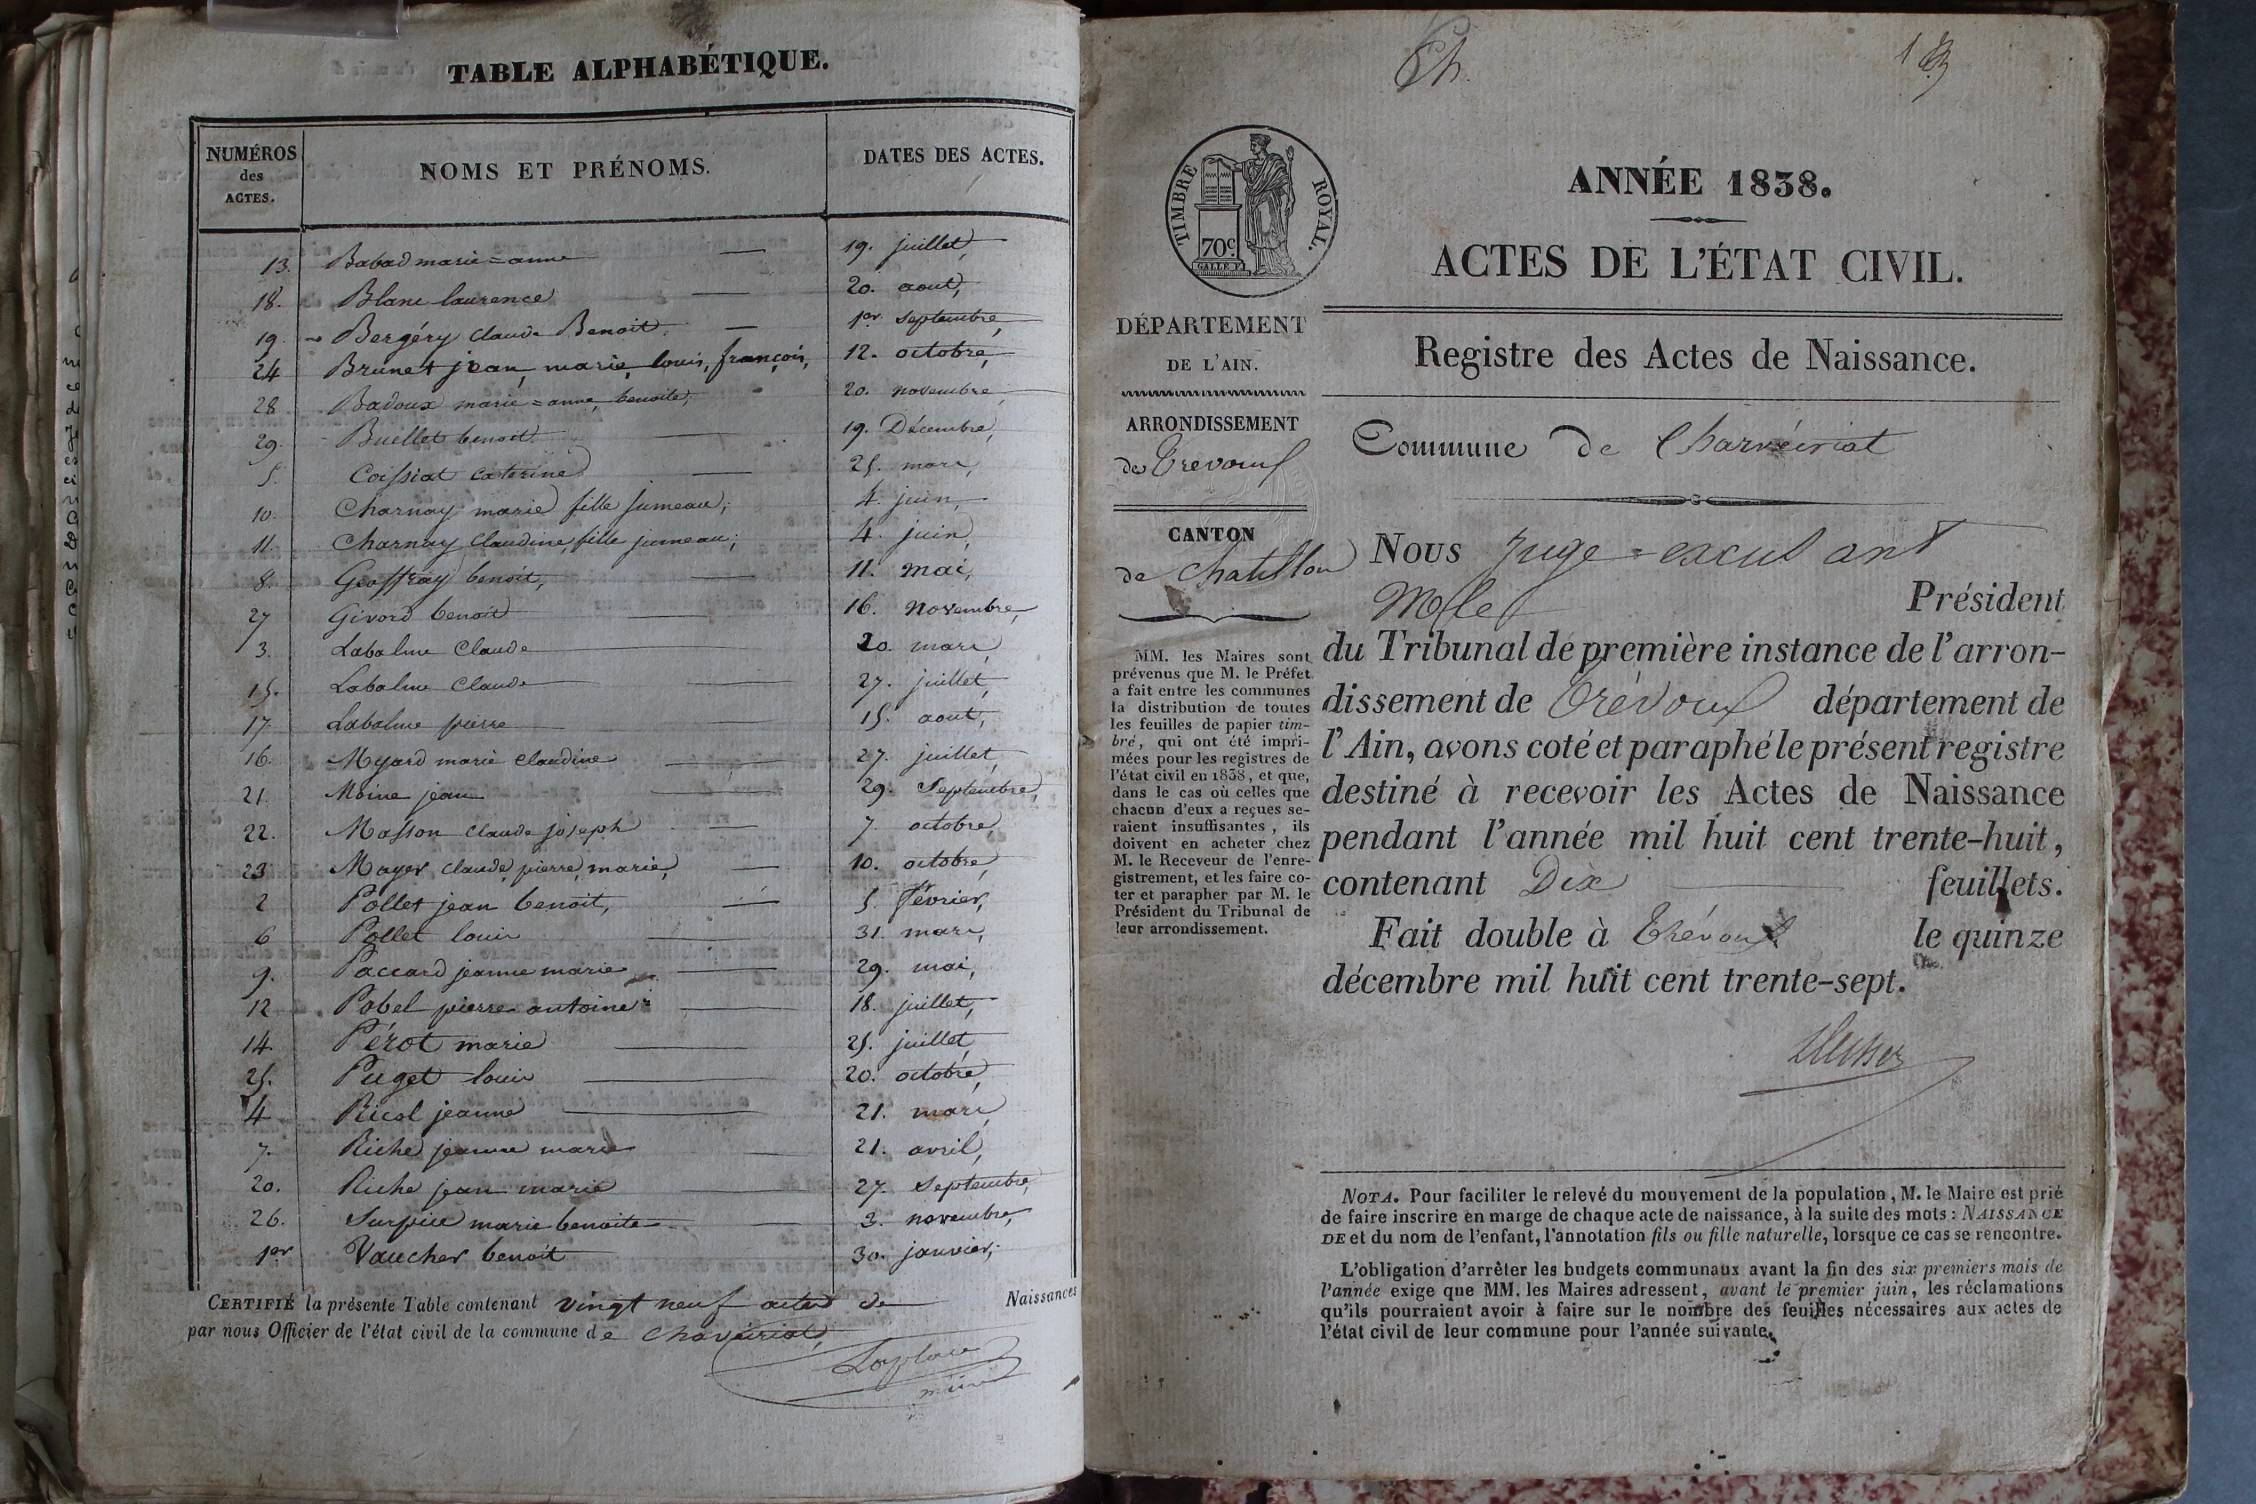 TABLE ALPHABÉTIQUE.
NUMÉROS des ACTES. NOMS ET PRÉNOMS. DATES DES ACTES.
13. Babad marie=anne 19. juillet,
18. Blanc laurence 20. aout,
19. Bergéry Claude Benoit. 1er septembre,
24 Brunet jean, marie, louis, françois, 12. octobre,
28 Badoux marie=anne, benoite, 20. novembre,
29. Buellet benoit 19. Décembre,
5. Coissiat caterine 25. mars,
10. Charnay marie fille jumeau; 4. juin,
11. Charnay Claudine, fille jumeau; 4. juin,
8. Geoffray benoit, 11. mai,
27 Givord benoit 16. novembre,
3. Labalme Claude 20. mars,
15. Labalme Claude 27. juillet,
17. Labalme pierre 15. aout,
16. Myard marie claudine 27. juillet,
21. Moine jean 29. Septembre,
22. Masson claude joseph 7. octobre,
23 Mayer claude, pierre, marie, 10. octobre,
2 Pollet jean benoit, 5. février,
6 Pollet louis 31. mars,
9. Paccard jeanne marie 29. mai,
12 Pobel pierre antoine 18. juillet,
14. Pérot marie 25. juillet,
25. Puget louis 20. octobre,
4 Ricol jeanne 21. mars,
7. Riche jeanne marie 21. avril,
20. Riche jean marie 27. septembre,
26. Surpice marie benoite 3. novembre,
1er Vaucher benoit 30. janvier,
CERTIFIÉ la présente Table contenant vingt neuf actes de Naissances
par nous Officier de l'état civil de la commune de Chaveiriat,
Laplace
Ch.
ANNÉE 1838.
ACTES DE L'ÉTAT CIVIL.
TIMBRE ROYAL.
70c
DÉPARTEMENT
DE L'AIN.
ARRONDISSEMENT
de Trevoux
CANTON
de Chatillon
MM. les Maires sont
prévenus que M. le Préfet
a fait entre les communes
la distribution de toutes
les feuilles de papier tim-
bré, qui ont été impri-
mées pour les registres de
l'état civil en 1838, et que,
dans le cas où celles que
chacun d'eux a reçues se-
raient insuffisantes, ils
doivent en acheter chez
M. le Receveur de l'enre-
gistrement, et les faire co-
ter et parapher par M. le
Président du Tribunal de
leur arrondissement.
Registre des Actes de Naissance.
Commune de Charvéiriat
Nous Juge=
Président
du Tribunal de première instance de l'arron-
dissement de Trévoux département de
l'Ain, avons coté et paraphé le présent registre
destiné à recevoir les Actes de Naissance
pendant l'année mil huit cent trente-huit,
contenant Dix feuillets.
Fait double à Trévoux le quinze
décembre mil huit cent trente-sept.
NOTA. Pour faciliter le relevé du mouvement de la population, M. le Maire est prié
de faire inscrire en marge de chaque acte de naissance, à la suite des mots : NAISSANCE
DE et du nom de l'enfant, l'annotation fils ou fille naturelle, lorsque ce cas se rencontre.
L'obligation d'arrêter les budgets communaux avant la fin des six premiers mois de
l'année exige que MM. les Maires adressent, avant le premier juin, les réclamations
qu'ils pourraient avoir à faire sur le nombre des feuilles nécessaires aux actes de
l'état civil de leur commune pour l'année suivante.